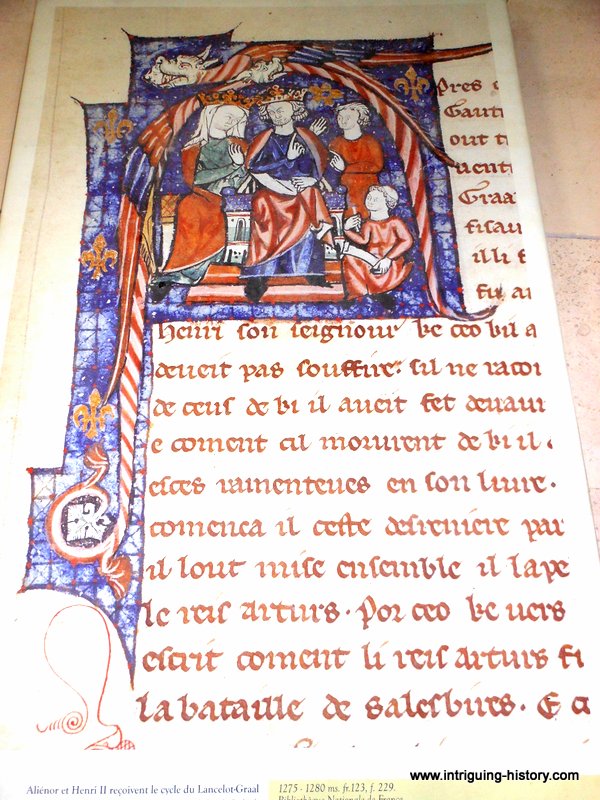 pres
Gauti
out
uent
Graa
fisau
illi
henri son seignour ke ceo kil a
deueit pas souffire. sil ne racoi
de ceus de ki il aueit fet deuaur
e coment cil morurent de ki il.
esces ramenteues en son liure.
comenca il ceste desreniere par
il lout mise ensemble il lape
le reis arturs. Por ceo ke uers
escrit coment li reis arturs fi
la bataille de salesbires. E a
Aliénor et Henri II reçoivent le cycle du Lancelot-Graal
1275 - 1280 ms. fr.123, f. 229.
Bibliothèque Nationale de France
www.intriguing-history.com